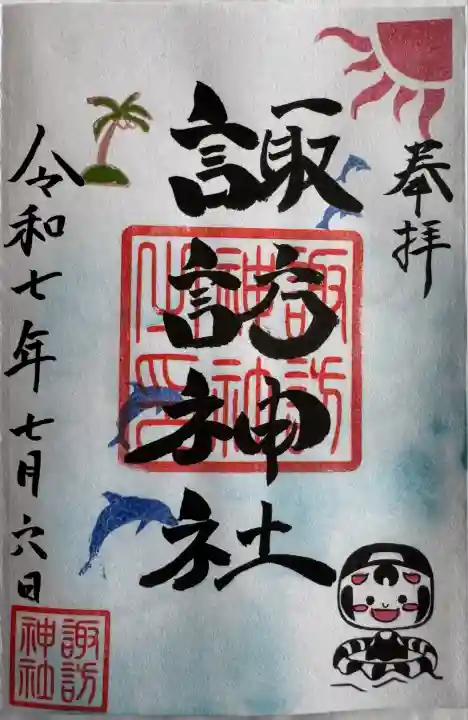 奉拝
諏訪神社
諏訪
神社
之印
令和七年七月六日
諏訪
神社